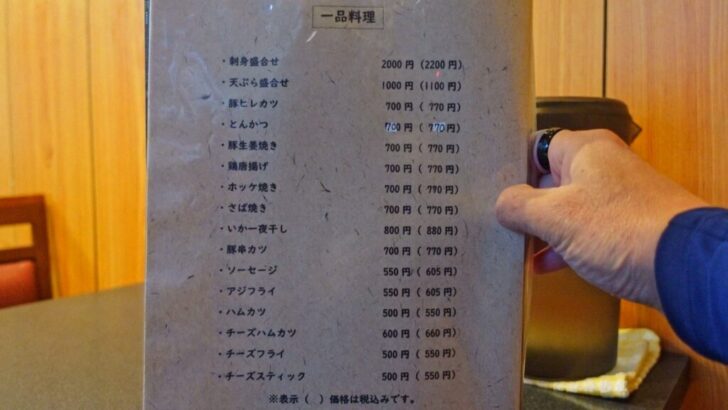 一品料理
・刺身盛合せ 2000円(2200円)
・天ぷら盛合せ 1000円(1100円)
・豚ヒレカツ 700円( 770円)
・とんかつ 700円( 770円)
・豚生姜焼き 700円( 770円)
・鶏唐揚げ 700円( 770円)
・ホッケ焼き 700円( 770円)
・さば焼き 700円( 770円)
・いか一夜干し 800円( 880円)
・豚串カツ 700円( 770円)
・ソーセージ 550円( 605円)
・アジフライ 550円( 605円)
・ハムカツ 500円( 550円)
・チーズハムカツ 600円( 660円)
・チーズフライ 500円( 550円)
・チーズスティック 500円( 550円)
※表示( )価格は税込みです。